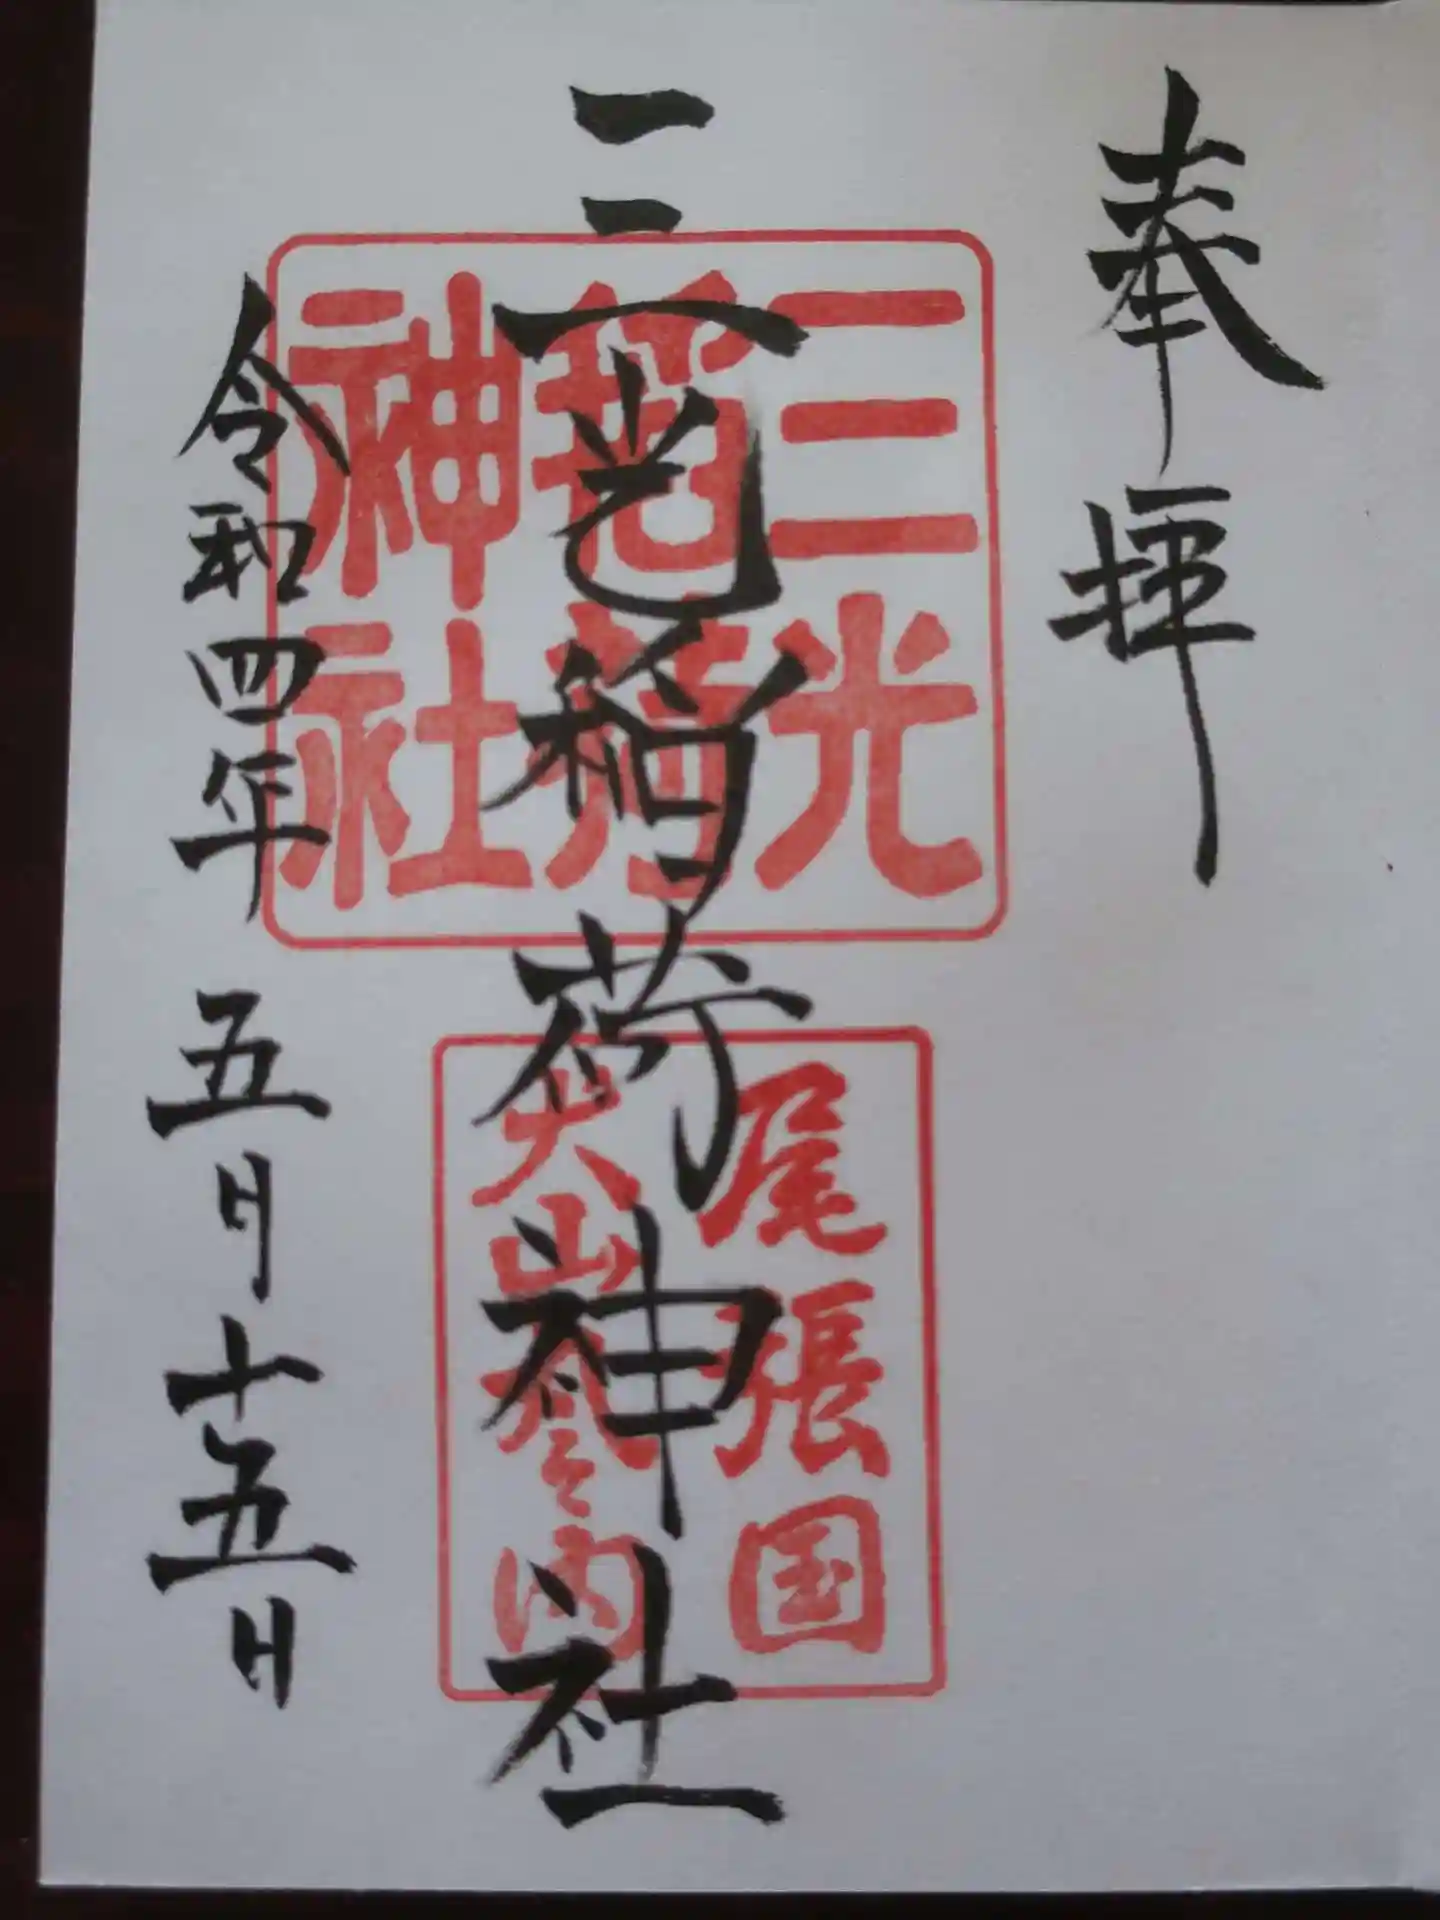 奉拝
三光稲荷神社
三光
稲荷
神社
尾張国
犬山丸之内
令和四年 五月十五日